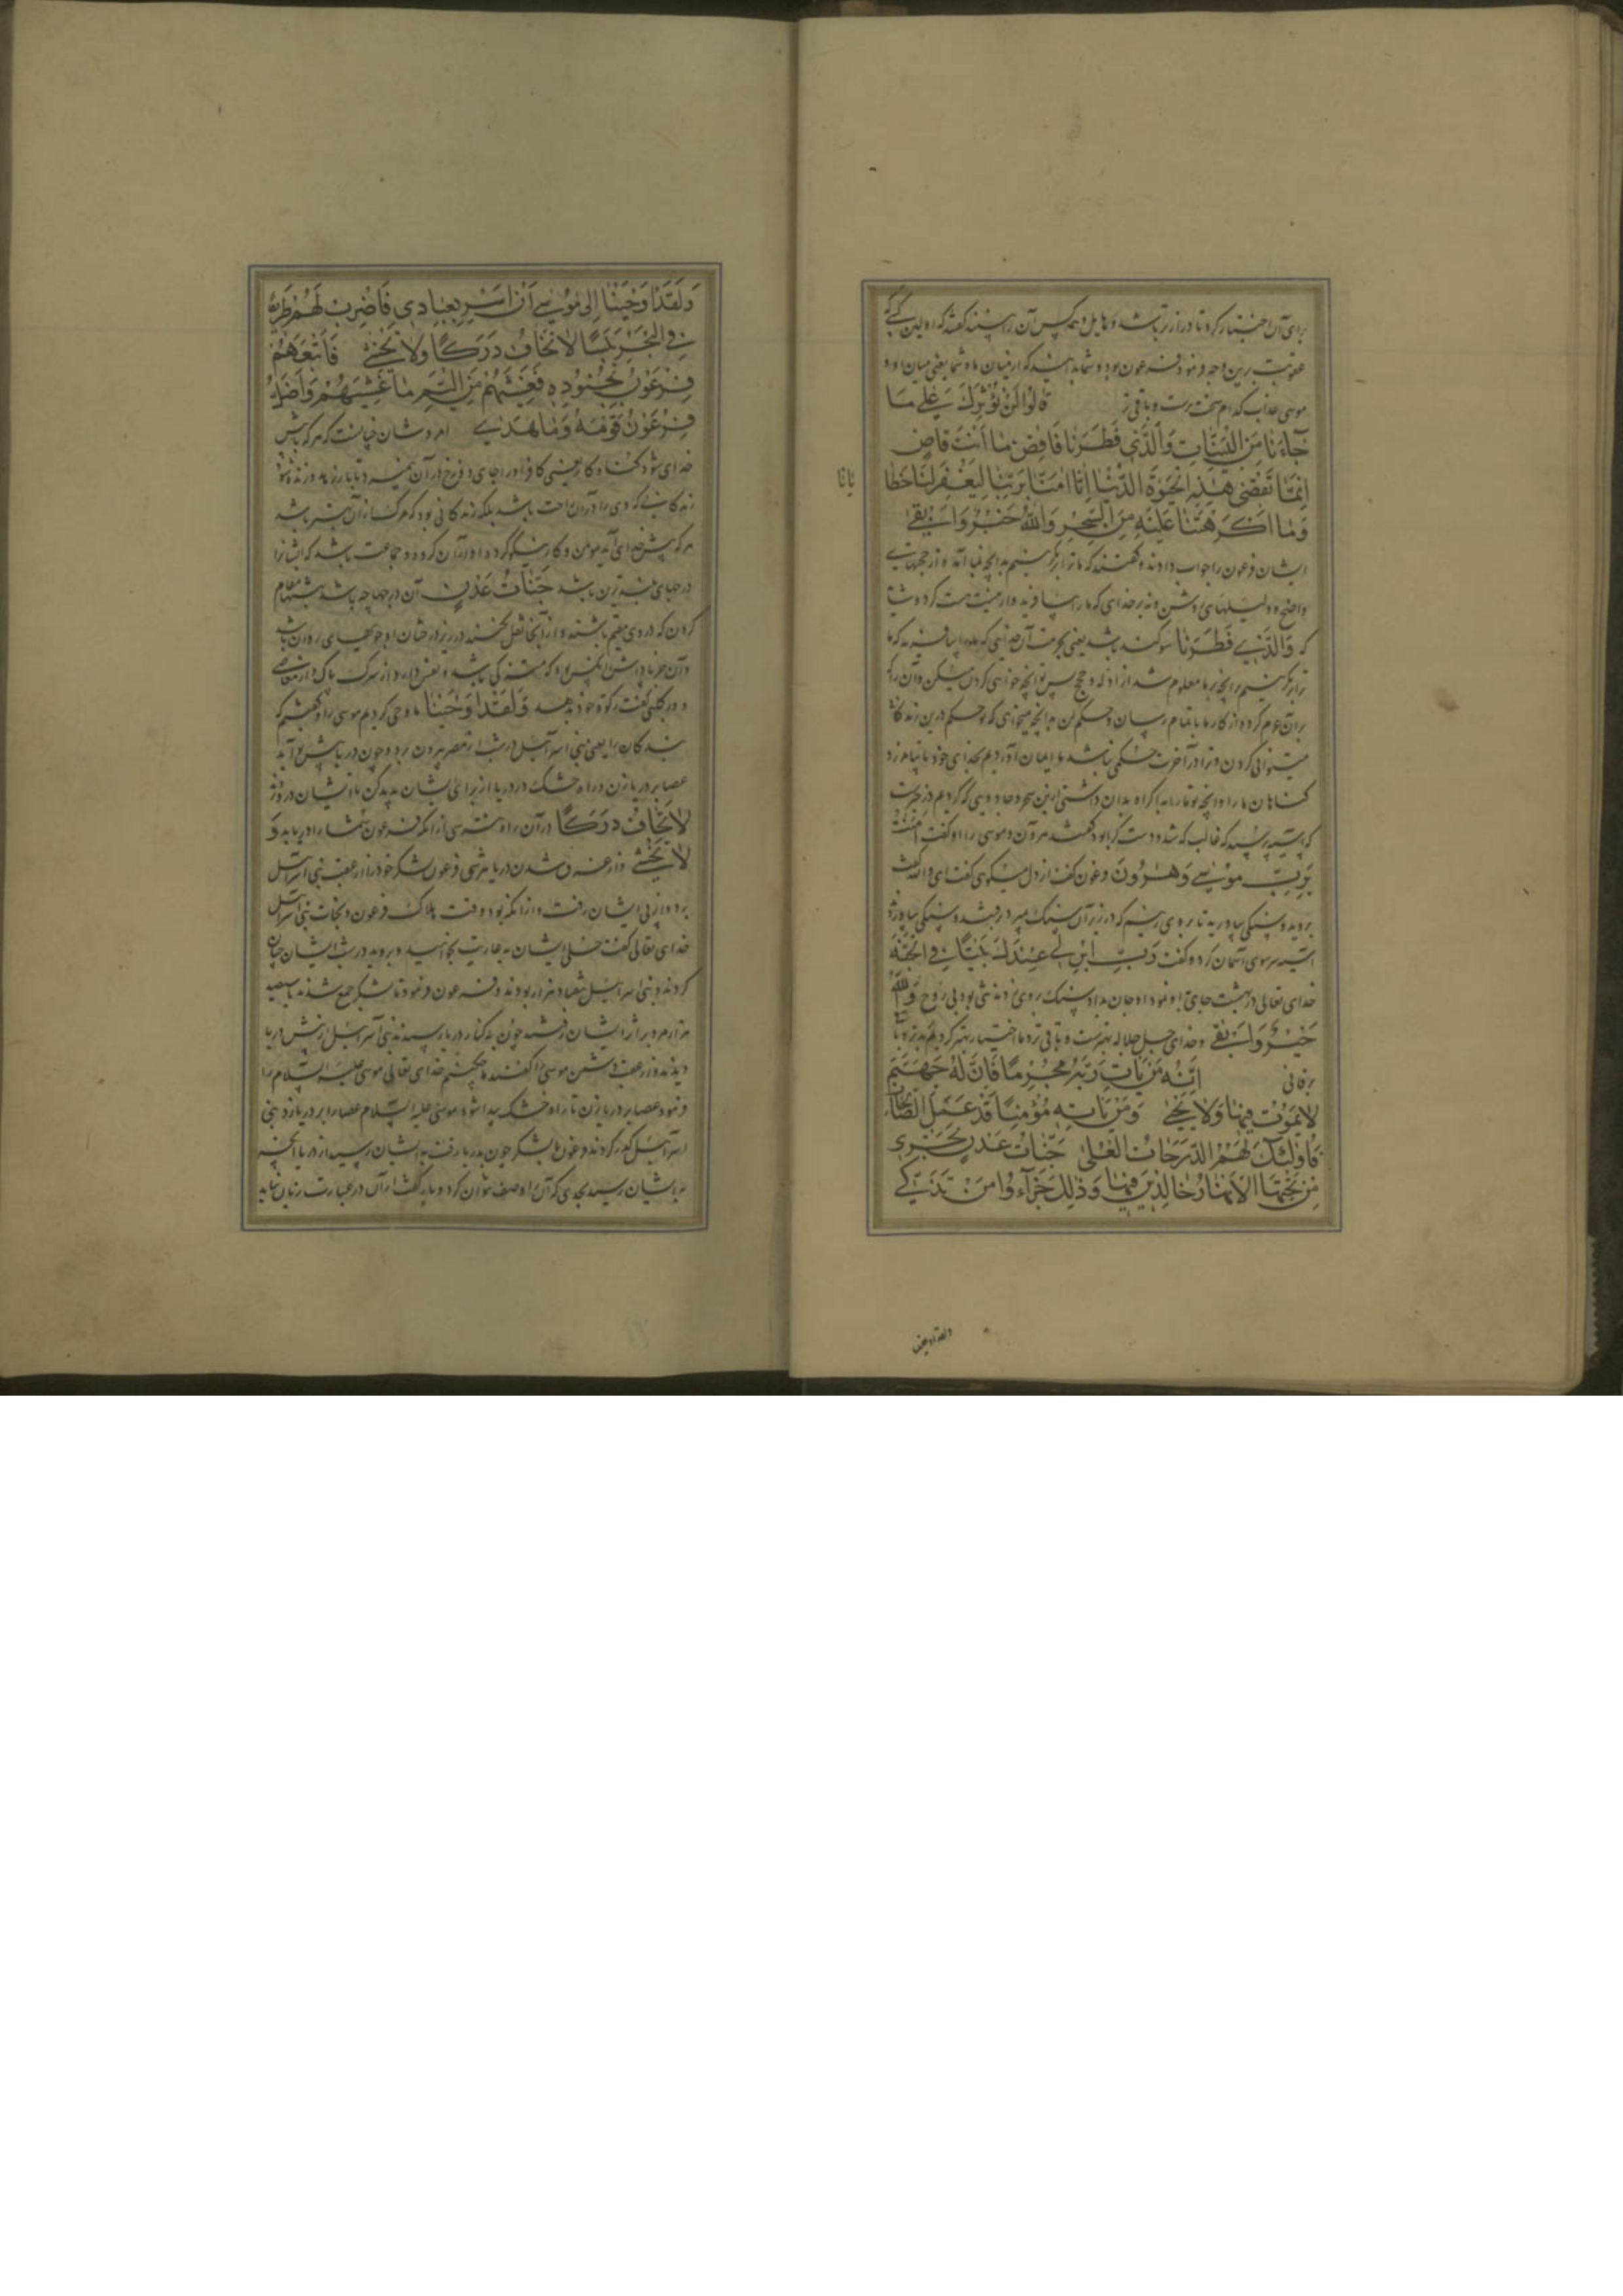 برای آن اختیار کرد تا دراز تر باشد و هایل و همه کس آن را ببینند گفته‌اند که اولین کسی که
عقوبت برین وجه فرمود فرعون بود و شما بدانید که از میان ما و شما یعنی میان او و
موسی عذاب کدام سخت ترست و باقی تر قالوا لن نؤثرك علی ما
جآءنا من البینات والذی فطرنا فاقض ما انت قاض
انما تقضی هذه الحیوة الدنیا انا امنا بربنا لیغفر لنا خطا
یانا
وما اکرهتنا علیه من السحر والله خیر وابقی
ایشان فرعون را جواب دادند و گفتند که ما ترا بر نگزینیم بدانچه بما آمده از حجتهای
واضح و دلیلهای روشن و نه بر خدای که ما را بیافرید و از نیست هست کرد و شاید
که والذی فطرنا سوکند باشد یعنی بحرمت آن خدایی که ما را بیافرید که ما
ترا بر نگزینیم بر آنچه بر ما معلوم شد از ادله و حجج پس تو آنچه خواهی کردن میکن و آن را که
بر آن عزم کرده از کار ما باتمام رسان و حکم کن بدانچه میخواهی که تو حکم درین زندگانی
میتوانی کردن و ترا در آخرت حکمی نباشد ما ایمان آوردیم بخدای خود تا بیامرزد
گناهان ما را و آنچه تو ما را به اکراه بدان داشتی ازین سحر و جادویی که کردیم
که آسیه پرسید که غالب که شد و دست کرا بود گفتند هرون و موسی را او گفت امنت
برب موسی وهرون فرعون گفت از دل میگوئی گفت ای والله گفت
بروید و سنگی بیاورید تا بر وی زنیم که در زیر آن سنگ میرد رفتند و سنگی بیاوردند
آسیه سر سوی آسمان کرد و گفت رب ابن لی عندك بیتا فی الجنة
خدای تعالی در بهشت جای باو نمود او جان بداد سنگ بر وی زدند تنی بود بی روح والله
خیر وابقی و خدای جل جلاله بهترست و باقی تر و ما اختیار بهتر کردیم بر تو و باقی
بر فانی انه من یأت ربه مجرما فان له جهنم
لا یموت فیها ولا یحیی ومن یأته مؤمنا قد عمل الصالحات
فاولئك لهم الدرجات العلی جنات عدن تجری
من تحتها الانهار خالدین فیها وذلك جزآء من تزکی
ولقد اوحینا
ولقد اوحینا الی موسی ان اسر بعبادی فاضرب لهم طریقا
فی البحر یبسا لا تخاف درکا ولا تخشی فاتبعهم
فرعون بجنوده فغشیهم من الیم ما غشیهم واضل
فرعون قومه وما هدی امر و شان چنانست که هر که با پیش
خدای شود گناه کار یعنی کافر او را جای دوزخ در آن نمیرد تا باز رهد و زنده نشود
زندگانیی که وی را در آن راحت باشد بلکه زندگانی بود که مرگ از آن بهتر باشد
هر که پیش خدای آید مومن و کار نیکو کرده او در آن گروه و جماعت باشد که ایشانرا
درجهای بلندترین باشد جنات عدن آن درجها چه باشد بهشتهای مقام
کردن که در وی مقیم باشند و از آنجا نقل نکنند در زیر درختان او جویهای روان باشد
و آن جزا و پاداشت آنکس بود که متزکی باشد و نفس دارد از شرک پاک و از معاصی
و در کلبی گفت زکوة خود بدهند ولقد اوحینا ما وحی کردیم موسی را و گفتیم که
بندگان را یعنی بنی اسرآئیل در شب از مصر بیرون برد و چون دریا پیش تو آید
عصا بر دریا زن و راه خشک در دریا از برای ایشان پدید کن تا ایشان در روند
لا تخاف درکا در آن راه نترسی از آنکه فرعون شما را دریابد و
لا تخشی و از غرق شدن در دریا نترسی فرعون لشکر خود را از عقب بنی اسرآئیل
برد و از پی ایشان رفت و از آنکه بود وقت هلاک فرعون و نجات بنی اسرآئیل
خدای تعالی گفت حلی ایشان به عاریت بخواهید و بروید در شب ایشان چنان
کردند و بنی اسرآئیل هفتاد هزار بودند و فرعون فرمود تا لشکر جمع شدند با سیصد
هزار مرد بر اثر ایشان رفتند چون به کنار دریا رسیدند بنی آسرآئیل از پیش دریا
دیدند و از عقب دشمن موسی را گفتند ما چه کنیم خدای تعالی موسی علیه السلام را
فرمود عصا بر دریا زن تا راه خشک پیدا شود موسی علیه السلام عصا را بر دریا زد بنی
اسرآئیل گذر کردند و فرعون با لشکر چون بدریا رفت به ایشان رسید از دریا آنچه
به ایشان رسید بحدی که آن را وصف نتوان کرد و باید گفت در عبارت زبان نیاید